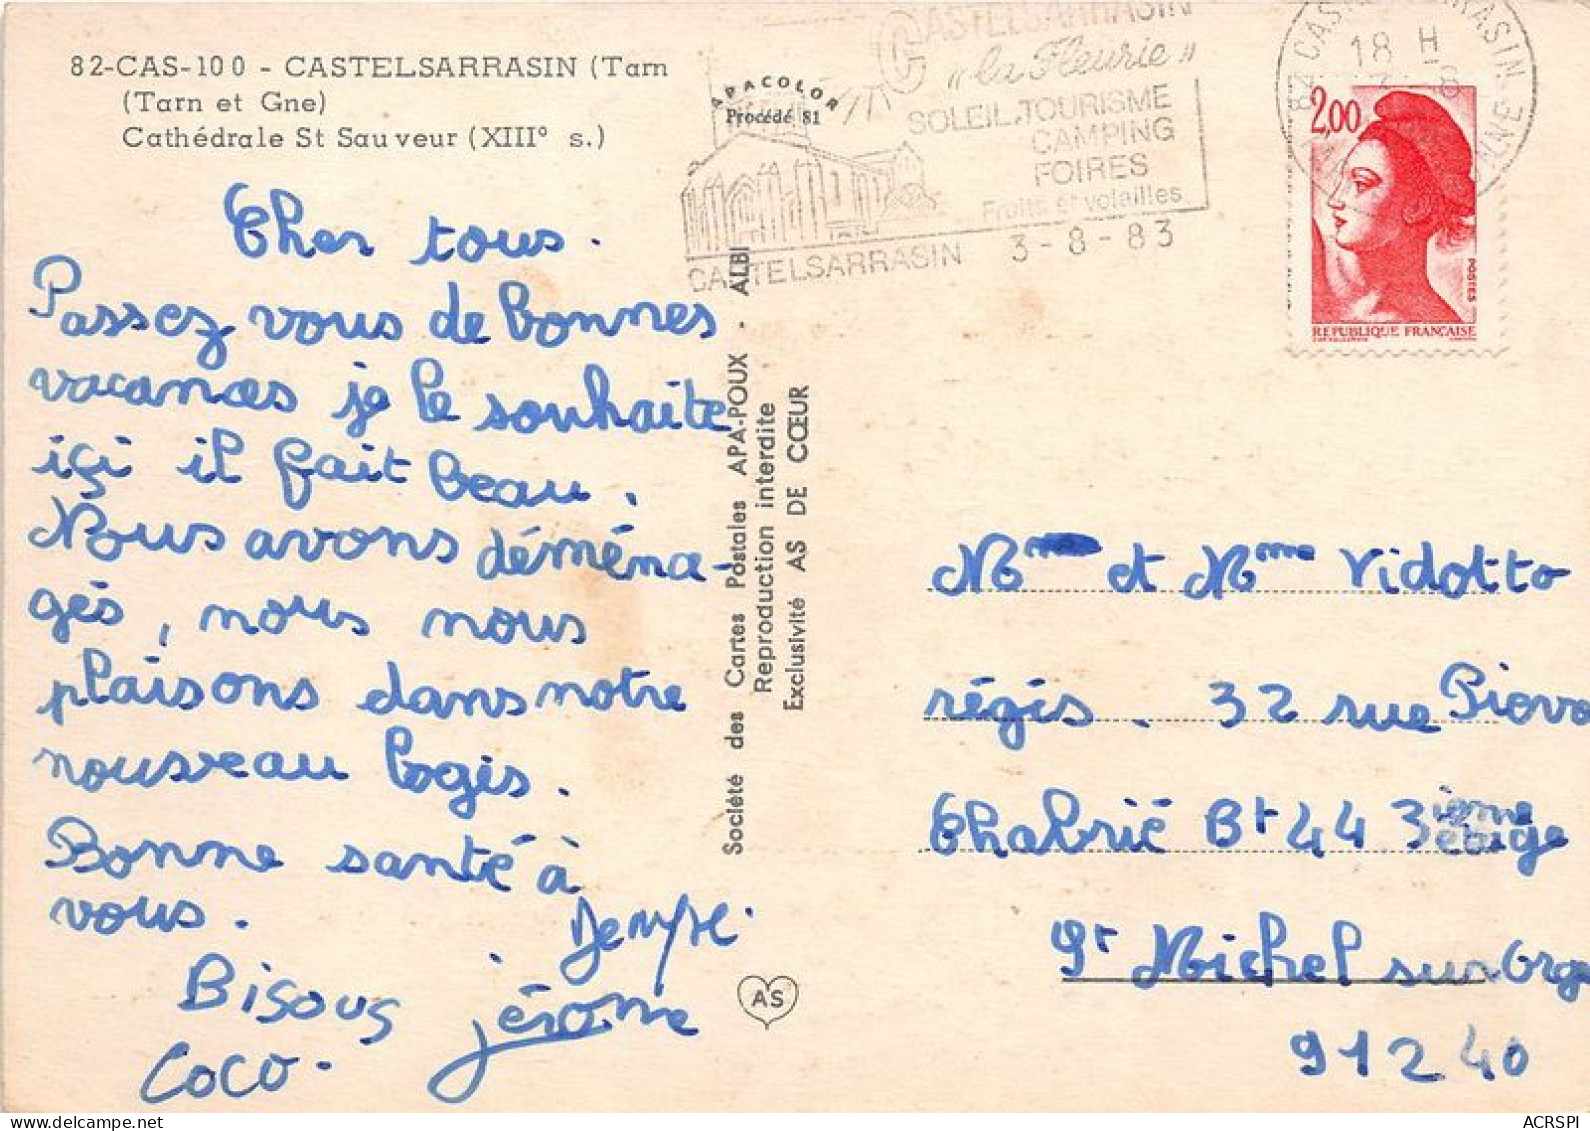 82-CAS-100 - CASTELSARRASIN (Tarn
(Tarn et Gne)
Cathédrale St Sauveur (XIII° s.)
APACOLOR
Procédé 81
CASTELSARRASIN
"la Fleurie"
SOLEIL.TOURISME
CAMPING
FOIRES
Fruits et volailles
CASTELSARRASIN 3-8-83
82 CASTELSARRASIN
18 H
2,00
POSTES
REPUBLIQUE FRANÇAISE
Cher tous.
Passez vous de bonnes
vacances je le souhaite
içi il fait beau.
Nous avons déména-
gés, nous nous
plaisons dans notre
nouveau logis.
Bonne santé à
vous.
Bisous jérome
coco.
Société des Cartes Postales APA-POUX - ALBI
Reproduction interdite
Exclusivité AS DE CŒUR
AS
et Mme Vidotto
régis. 32 rue Piova
Chabrié Bt 44 3ième
St Michel sur Orge
91240
ACRSPI